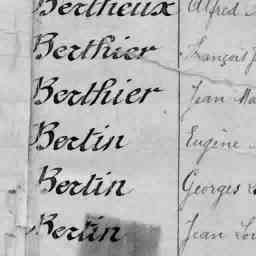 Bertheux Alfred
Berthier François J
Berthier Jean Ma
Bertin Eugène
Bertin Georges L
Bertin Jean Lou